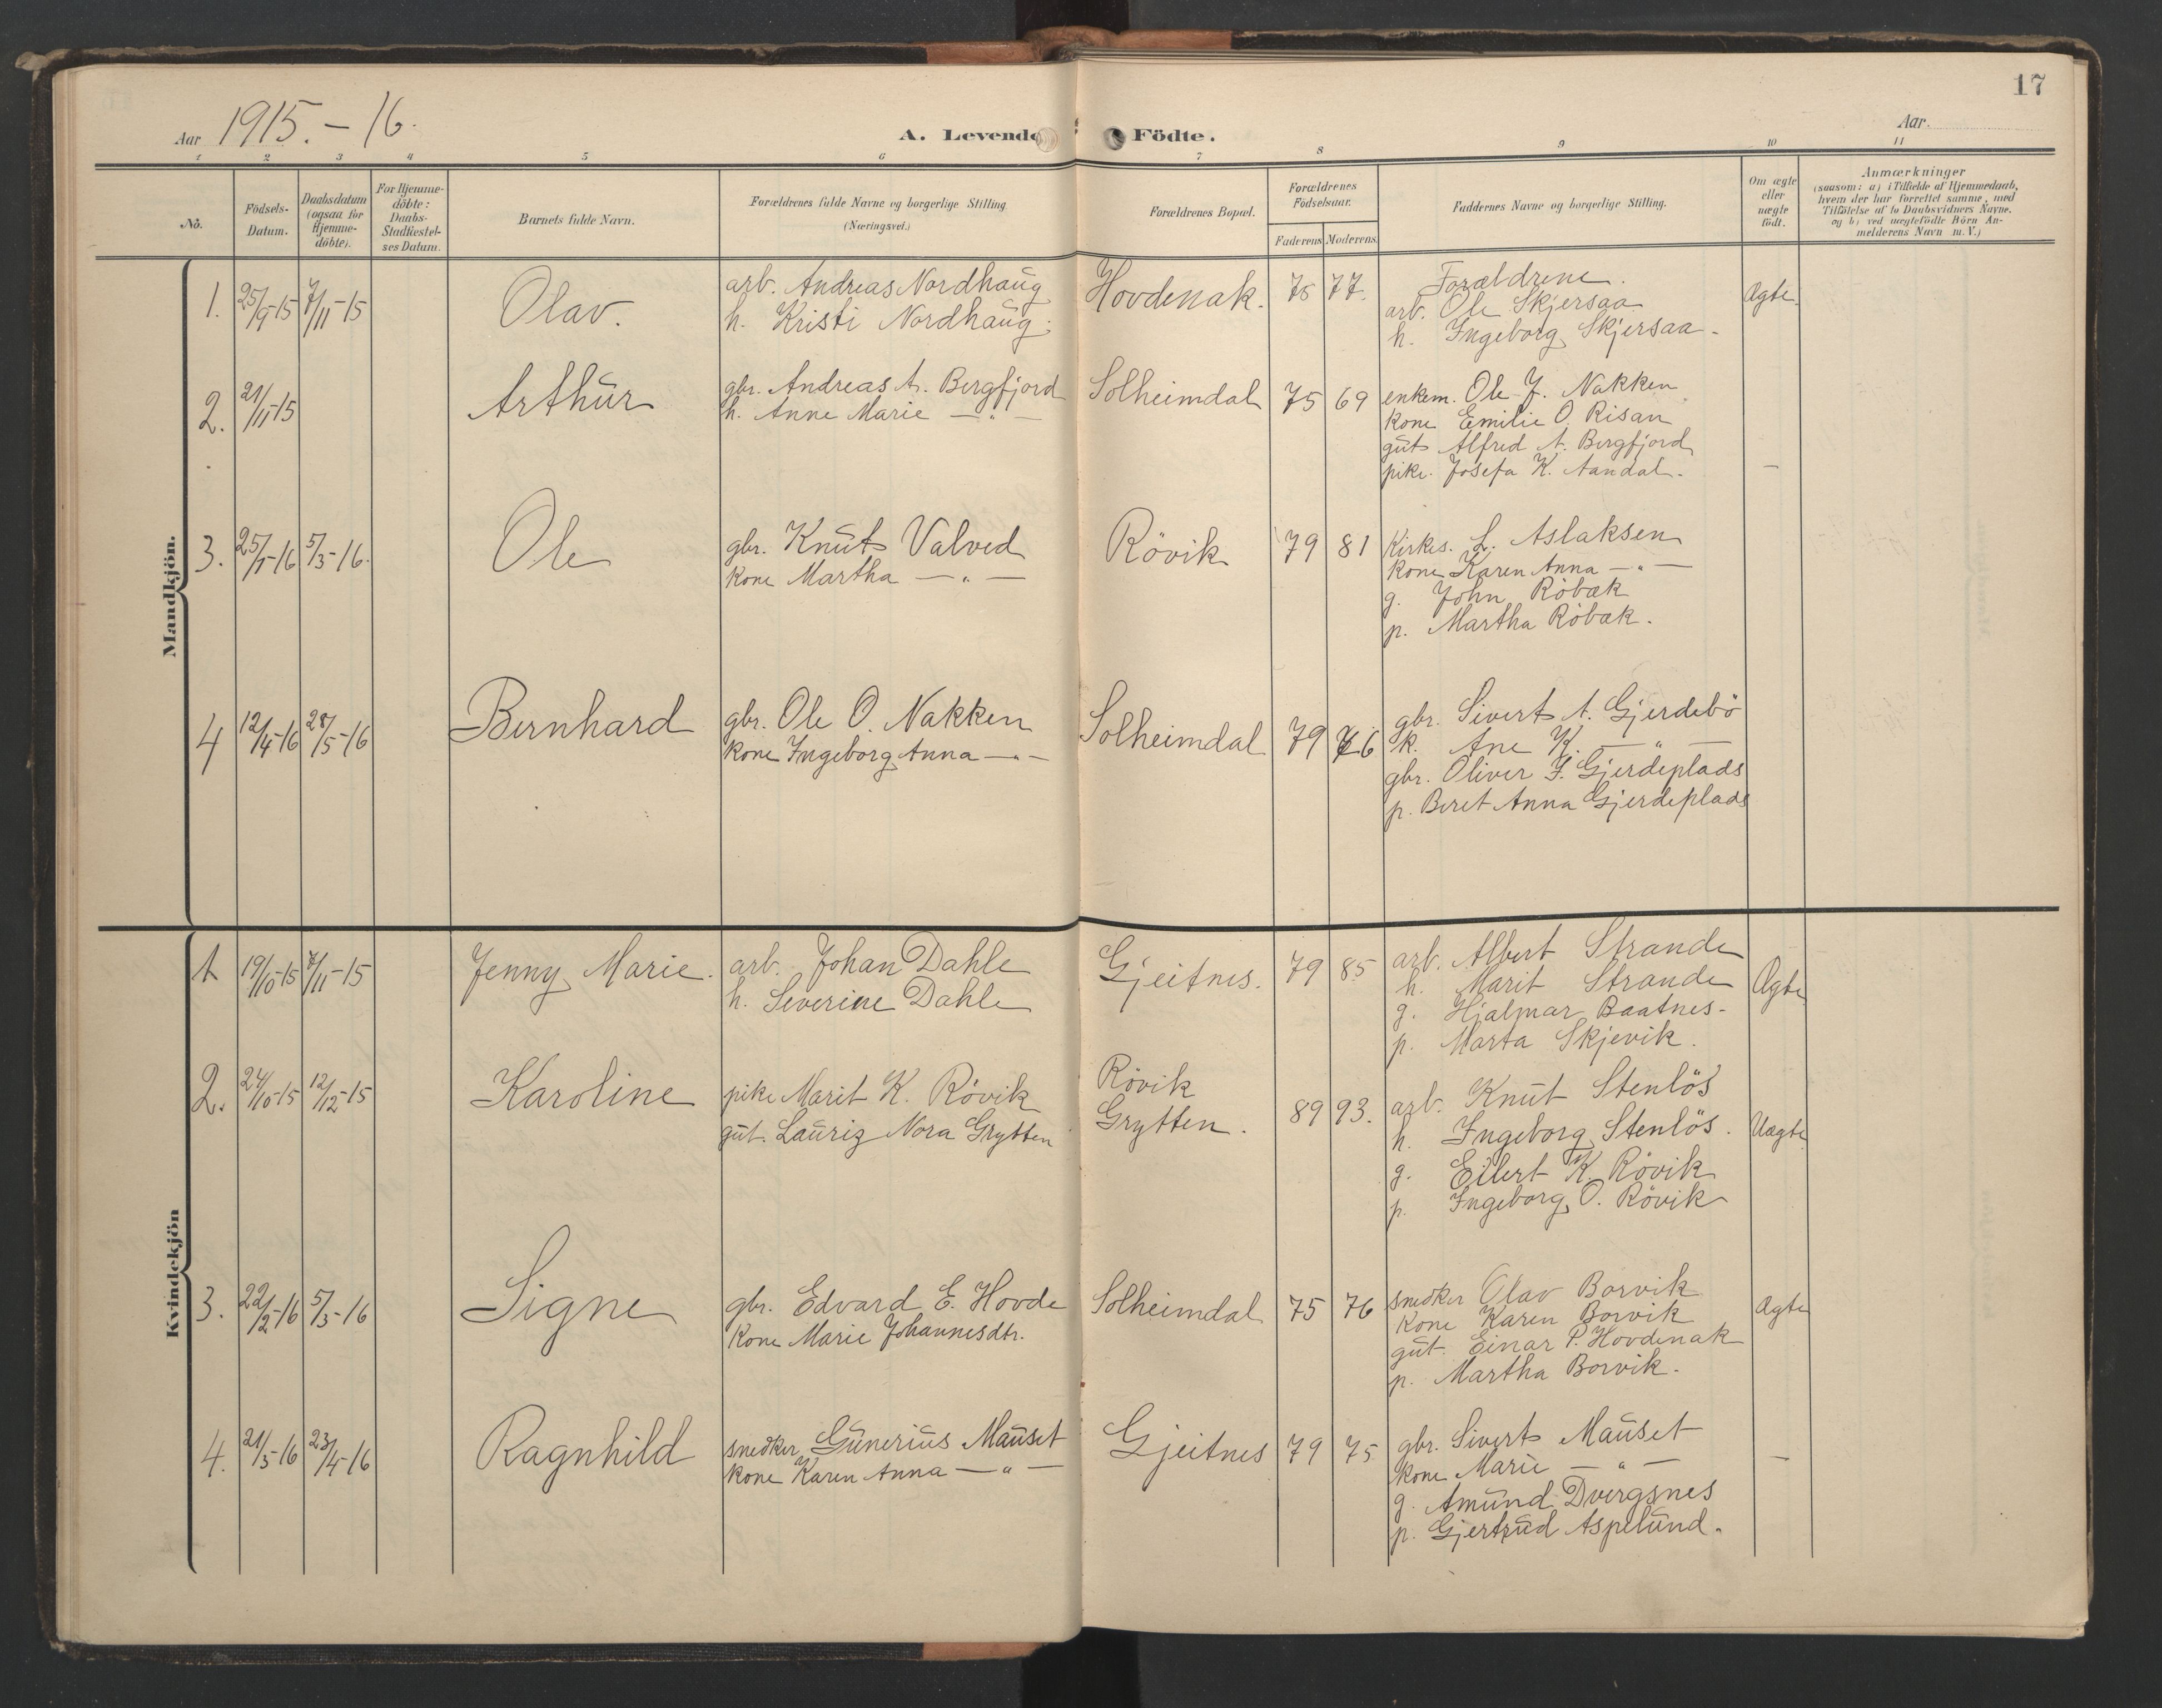 17
Aar 1915.-16.
A. Levende Födte.
Aar.
1 2 3 4 5 6 7 8 9 10 11
No.
Födsels-Datum.
Daabsdatum (ogsaa for Hjemme-döbte).
For Hjemme-döbte: Daabs-Stadfæstel-ses Datum.
Barnets fulde Navn.
Forældrenes fulde Navne og borgerlige Stilling (Næringsvei.)
Forældrenes Bopæl.
Forældrenes Födselsaar.
Faderens Moderens
Faddernes Navne og borgerlige Stilling.
Om ægte eller uægte födt.
Anmærkninger
(saasom: a) i Tilfælde af Hjemmedaab,
hvem der har forrettet samme, med
Tilföielse af to Daabsvidners Navne.
og b) ved uægtefödte Börn An-
melderens Navn m.V.)
Mandkjön.
1. 25/9-15 7/11-15 Olav. arb. Andreas Nordhaug Hovdenak. 76 77. Forældrene. Ægte.
h. Kristi Nordhaug.
arb. Ole Skjersaa
h. Ingeborg Skjersaa.
2. 21/11-15 Arthur gbr. Andreas A. Bergfjord Solheimdal 75 69 enkem. Ole J. Nakken
h. Anne Marie —"—
kone Emilie O. Risan
gut Alfred A. Bergfjord
pike. Josefa K. Aandal. —
3. 25/1-16 5/3-16. Ole gbr. Knut Valved Rövik 79 81 Kirkes. L. Aslaksen
kone Martha —"—
kone Karen Anna —"—
g. John Röbak
p. Martha Röbak.
4 12/4-16 28/5-16 Bernhard gbr. Ole O. Nakken Solheimdal 79 76 gbr. Sivert A. Gjerdebö
kone Ingeborg Anna —"—
k. Ane K. —"—
gbr. Oliver J. Gjerdeplads
p. Beret Anna Gjerdeplads
Kvindekjön
1 19/10-15 7/11-15 Jenny Marie. arb. Johan Dahle Gjeitnes. 79 85 arb. Albert Strande Ægte
h. Severine Dahle
h. Marit Strande
g. Hjalmar Baatnes.
p. Marta Skjevik.
2. 24/10-15 12/12-15 Karoline pike Marit K. Rövik Rövik 89 93. arb. Knut Stenlös Uægte
gut. Lauriz Nora Grytten Grytten.
h. Ingeborg Stenlös.
g. Eilert K. Rövik
p. Ingeborg O. Rövik
3. 22/2-16 5/3-16 Signe gbr. Edvard E. Hovde Solheimdal 75 76 snedker Olav Borvik Ægte
kone Marie Johannesdtr.
kone Karen Borvik
gut. Einar P. Hovdenak
p. Martha Borvik.
4. 21/3-16 23/4-16 Ragnhild snedker Gunerius Mauset Gjeitnes 79 75 gbr. Sivert Mauset —
kone Karen Anna —"—
kone Marie —"—
g. Amund Dvergsnes
p. Gjertrud Aspelund.